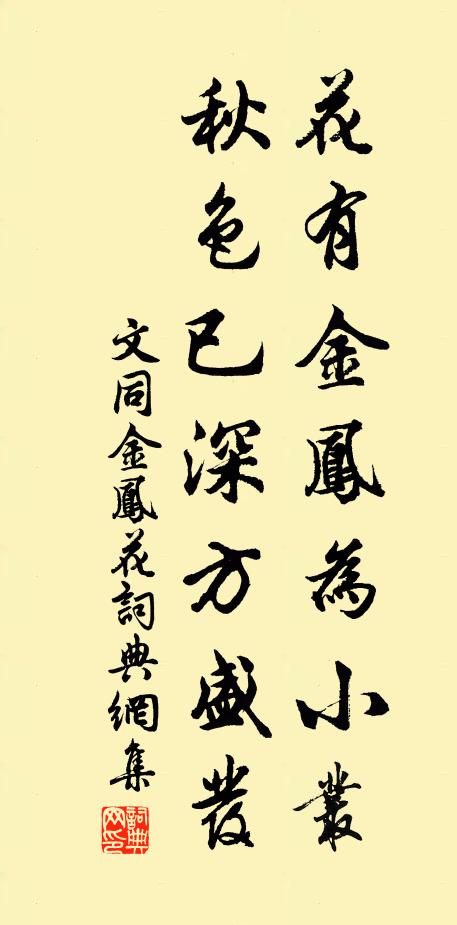 花有金鳳為小叢
秋色已深方盛發
文同金鳳花詞典網集
詞典網印